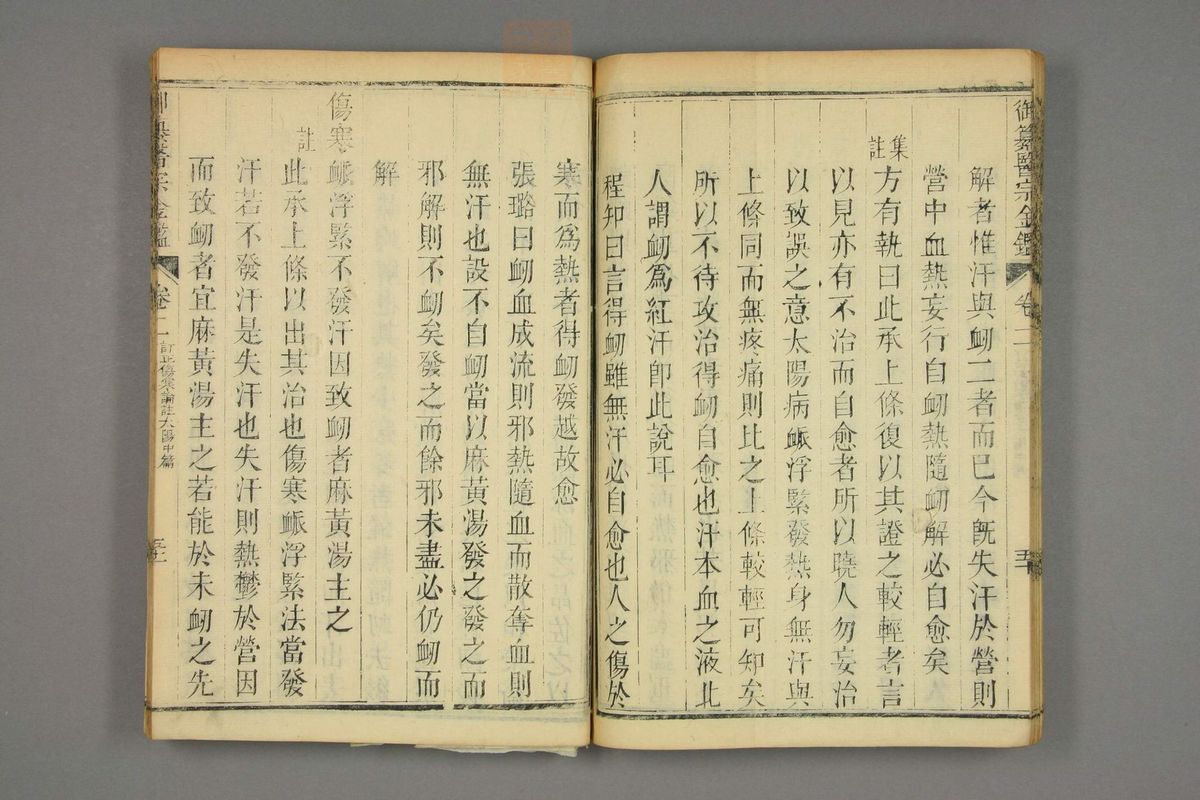 御纂醫宗金鑑 卷二 五十
解者惟汗與衂二者而已今既失汗於營則
營中血熱妄行自衂熱隨衂解必自愈矣
集註
方有執曰此承上條復以其證之較輕者言
以見亦有不治而自愈者所以曉人勿妄治
以致誤之意太陽病脈浮緊發熱身無汗與
上條同而無疼痛則比之上條較輕可知矣
所以不待攻治得衂自愈也汗本血之液北
人謂衂爲紅汗卽此說耳
程知曰言得衂雖無汗必自愈也人之傷於
寒而爲熱者得衂發越故愈
張璐曰衂血成流則邪熱隨血而散奪血則
無汗也設不自衂當以麻黃湯發之發之而
邪解則不衂矣發之而餘邪未盡必仍衂而
解
傷寒脈浮緊不發汗因致衂者麻黃湯主之
註
此承上條以出其治也傷寒脈浮緊法當發
汗若不發汗是失汗也失汗則熱鬱於營因
而致衂者宜麻黃湯主之若能於未衂之先
御纂醫宗金鑑 卷二 訂正傷寒論註太陽中篇